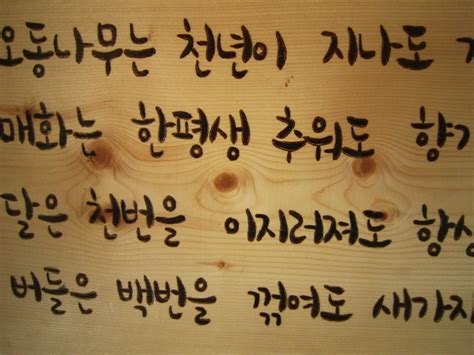 오동나무는 천년이 지나도
매화는 한평생 추워도 향기
달은 천번을 이지러져도 항상
버들은 백번을 꺾여도 새가지